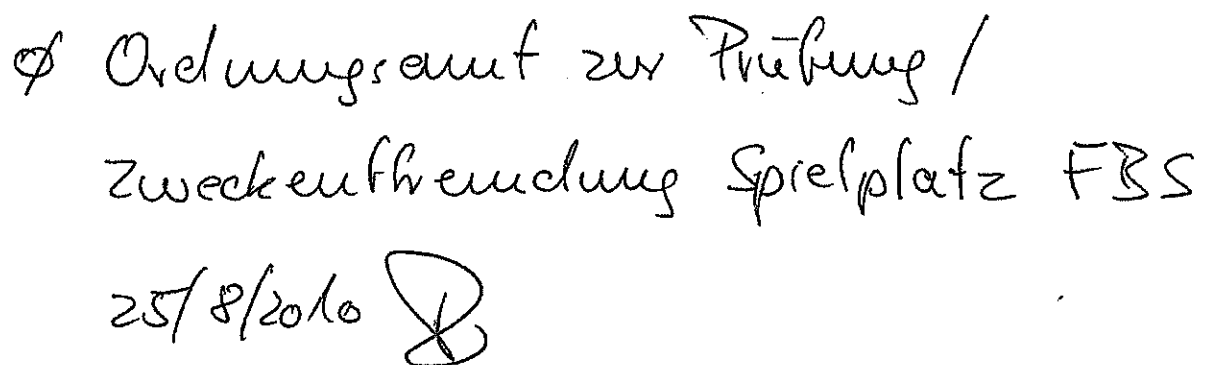 ∅ Ordnungsamt zur Prüfung /
Zweckentfremdung Spielplatz FBS
25/8/2010